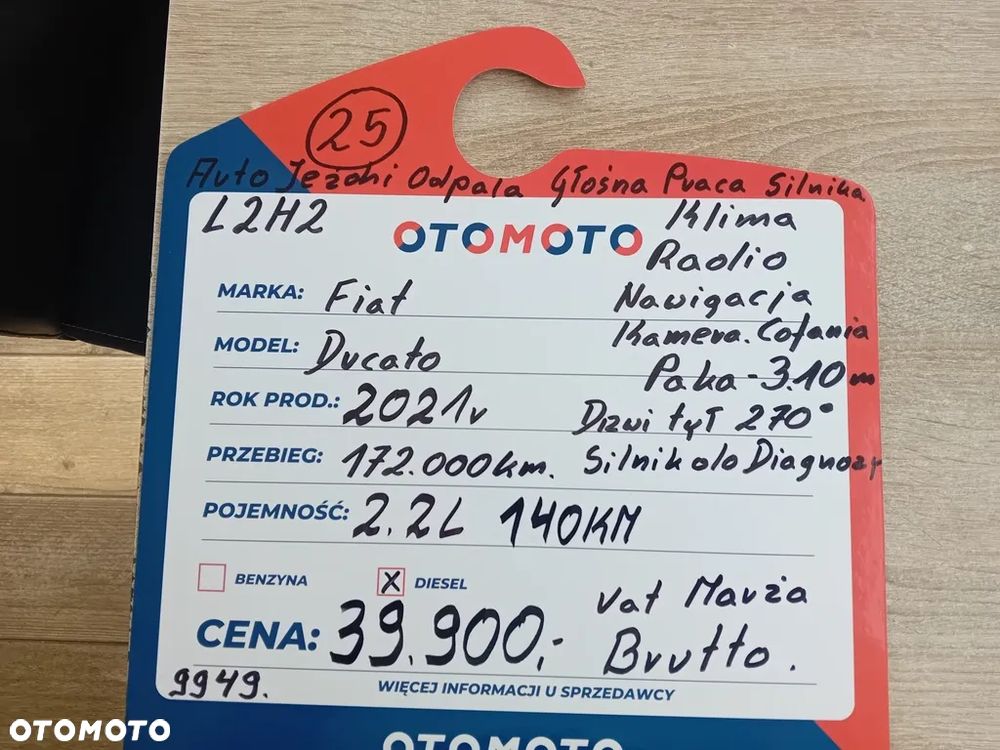 25
Auto Jeździ Odpala Głośna Praca Silnika
L2H2
OTOMOTO
Klima
Radio
MARKA: Fiat
Nawigacja
Kamera. Cofania
MODEL: Ducato
Paka - 3.10m
ROK PROD.: 2021r
Drzwi tył 270°
PRZEBIEG: 172.000km.
Silnik do Diagnozy
POJEMNOŚĆ: 2.2L 140KM
BENZYNA
X DIESEL
Vat Marża
CENA: 39.900,-
Brutto.
9949.
WIĘCEJ INFORMACJI U SPRZEDAWCY
OTOMOTO
OTOMOTO